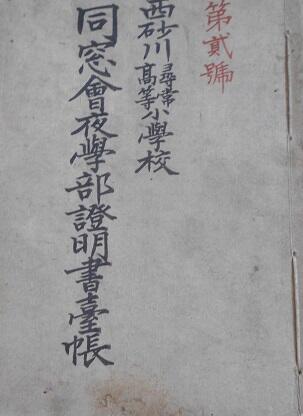 第貳號
西砂川尋常高等小學校
同窓會夜學部證明書臺帳